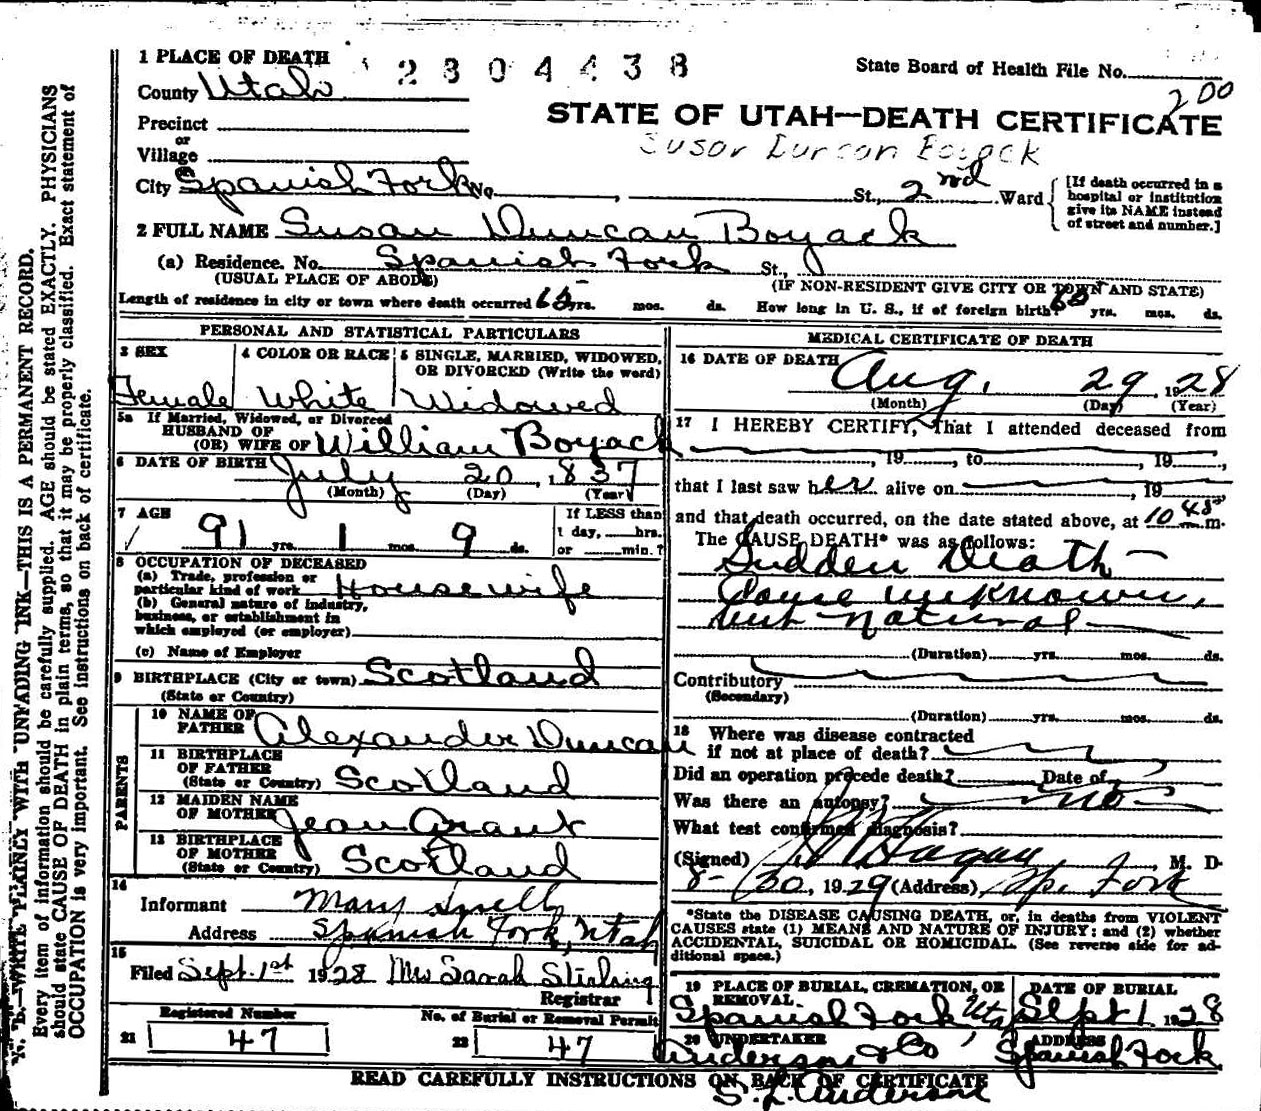 1 PLACE OF DEATH
2304438
State Board of Health File No.
200
County Utah
STATE OF UTAH—DEATH CERTIFICATE
Precinct
or
Village
City Spanish Fork No. , St., 2nd Ward
[If death occurred in a hospital or institution give its NAME instead of street and number.]
2 FULL NAME Susan Duncan Boyack
(a) Residence. No. Spanish Fork St.,
(USUAL PLACE OF ABODE) (IF NON-RESIDENT GIVE CITY OR TOWN AND STATE)
Length of residence in city or town where death occurred 65 yrs. mos. ds. How long in U. S., if of foreign birth? yrs. mos. ds.
PERSONAL AND STATISTICAL PARTICULARS
3 SEX
Female
4 COLOR OR RACE
White
5 SINGLE, MARRIED, WIDOWED, OR DIVORCED (Write the word)
Widowed
5a If Married, Widowed, or Divorced
HUSBAND OF
(OR) WIFE OF William Boyack
6 DATE OF BIRTH July 20, 1837
(Month) (Day) (Year)
7 AGE
91 yrs. 1 mos. 9 ds.
If LESS than
1 day, hrs.
or min.?
8 OCCUPATION OF DECEASED
(a) Trade, profession or
particular kind of work Housewife
(b) General nature of industry,
business, or establishment in
which employed (or employer)
(c) Name of Employer
9 BIRTHPLACE (City or town) Scotland
(State or Country)
PARENTS
10 NAME OF
FATHER Alexander Duncan
11 BIRTHPLACE
OF FATHER
(State or Country) Scotland
12 MAIDEN NAME
OF MOTHER Jean Grant
13 BIRTHPLACE
OF MOTHER
(State or Country) Scotland
14
Informant Mary Snell
Address Spanish Fork, Utah
15
Filed Sept. 1st 1928 Mrs Sarah Stirling
Registrar
Registered Number
21 47
No. of Burial or Removal Permit
22 47
MEDICAL CERTIFICATE OF DEATH
16 DATE OF DEATH
Aug. 29, 1928
(Month) (Day) (Year)
17 I HEREBY CERTIFY, That I attended deceased from
, 19 , to , 19 ,
that I last saw her alive on , 19
and that death occurred, on the date stated above, at 10 45 m.
The CAUSE DEATH* was as follows:
Sudden Death —
Cause unknown,
but natural
(Duration) yrs. mos. ds.
Contributory
(Secondary)
(Duration) yrs. mos. ds.
18 Where was disease contracted
if not at place of death?
Did an operation precede death? Date of
Was there an autopsy? no
What test confirmed diagnosis?
(Signed) Hagan, M. D.
8-30, 1929 (Address) Sp. Fork
*State the DISEASE CAUSING DEATH, or, in deaths from VIOLENT
CAUSES state (1) MEANS AND NATURE OF INJURY; and (2) whether
ACCIDENTAL, SUICIDAL OR HOMICIDAL. (See reverse side for ad-
ditional space.)
19 PLACE OF BURIAL, CREMATION, OR
REMOVAL
Spanish Fork Utah
DATE OF BURIAL
Sept 1 1928
20 UNDERTAKER
Anderson & Co
S. L. Anderson
ADDRESS
Spanish Fork
READ CAREFULLY INSTRUCTIONS ON BACK OF CERTIFICATE
N. B.—WRITE PLAINLY WITH UNFADING INK—THIS IS A PERMANENT RECORD.
Every item of information should be carefully supplied. AGE should be stated EXACTLY. PHYSICIANS
should state CAUSE OF DEATH in plain terms, so that it may be properly classified. Exact statement of
OCCUPATION is very important. See instructions on back of certificate.